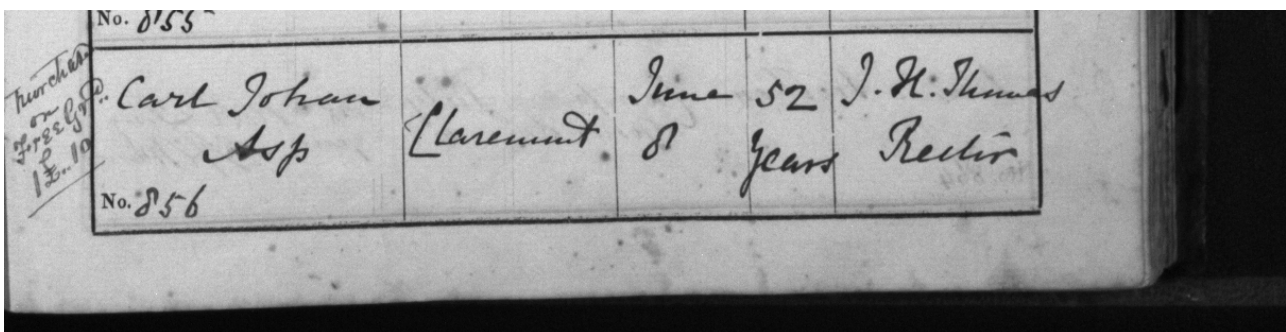 No. 855
purchased
on
FrEE Grd.
1£..10
Carl Johan
Asp
Claremont
June
8
52
Years
J. H. Thomas
Rector
No. 856